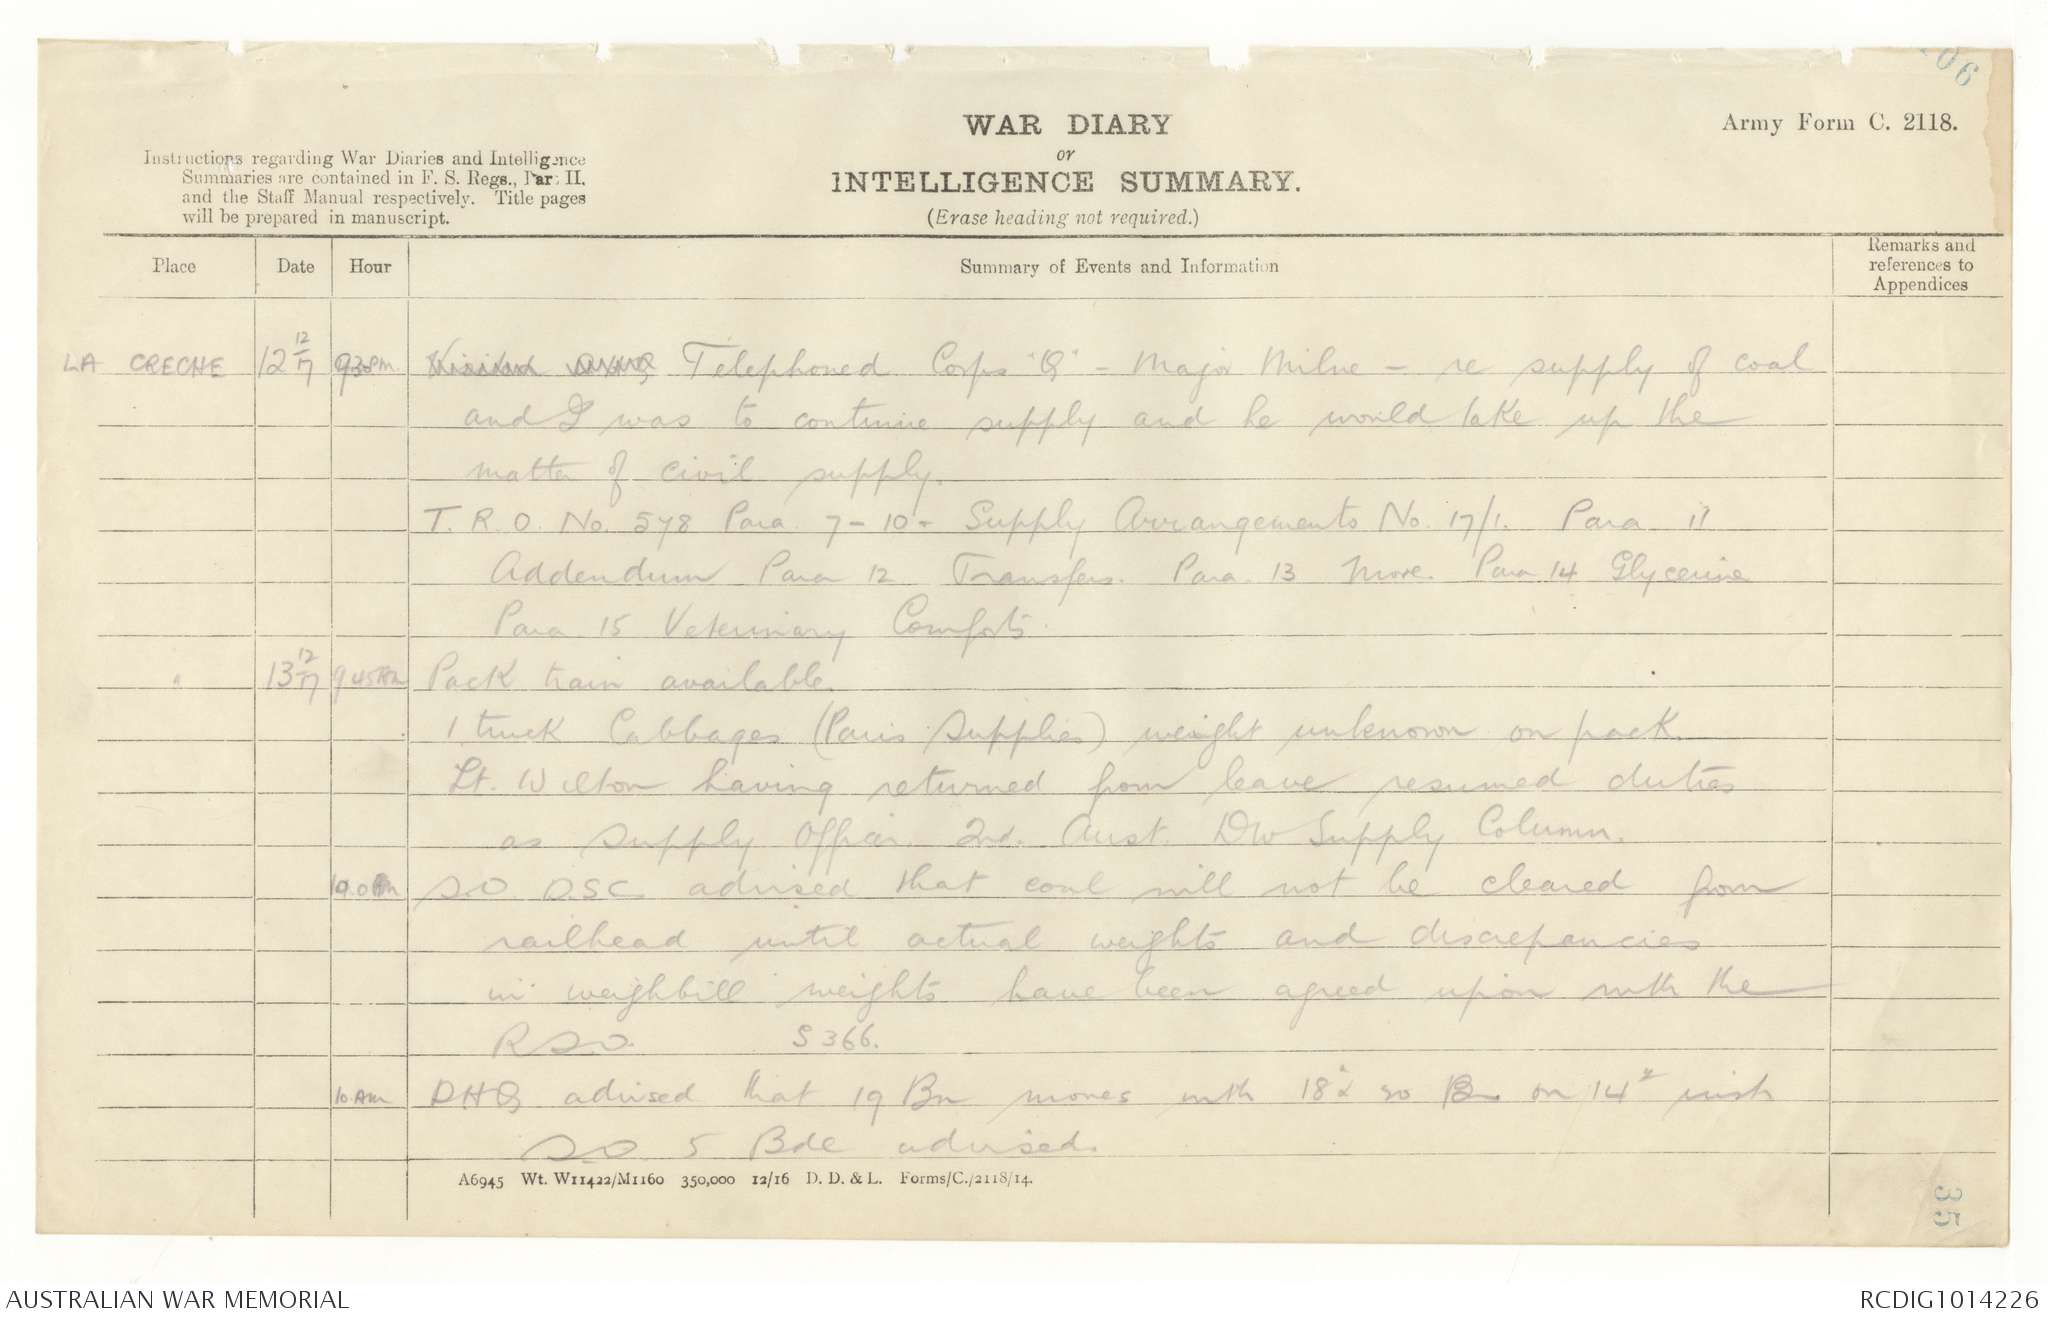 06
WAR DIARY
or
INTELLIGENCE SUMMARY.
(Erase heading not required.)
Army Form C. 2118.
Instructions regarding War Diaries and Intelligence
Summaries are contained in F. S. Regs., Part II.
and the Staff Manual respectively. Title pages
will be prepared in manuscript.
Place Date Hour Summary of Events and Information Remarks and references to Appendices
LA CRECHE 12 12/17 930PM. Telephoned Corps "Q" - Major Milne - re supply of coal
and I was to continue supply and he would take up the
matter of civil supply.
T. R. O. No. 578 Para. 7-10- Supply Arrangements No. 17/1. Para 11
Addendum Para 12 Transfers. Para. 13 More. Para 14 Glycerine
Para 15 Veterinary Comforts.
" 13 12/17 9 45AM Pack train available.
1 truck Cabbages (Paris Supplies) weight unknown on pack.
Lt. Wilton having returned from leave resumed duties
as Supply Officer. 2nd. Aust. Div Supply Column.
S.O. D.S.C. advised that coal will not be cleared from
railhead until actual weights and discrepancies
in weighbill weights have been agreed upon with the
R S.O. S 366.
10 AM DHQ advised that 19 Bn moves with 18" Bn on 14"
S.O. 5 Bde advised.
A6945 Wt. W11422/M1160 350,000 12/16 D. D. & L. Forms/C./2118/14.
35
AUSTRALIAN WAR MEMORIAL
RCDIG1014226